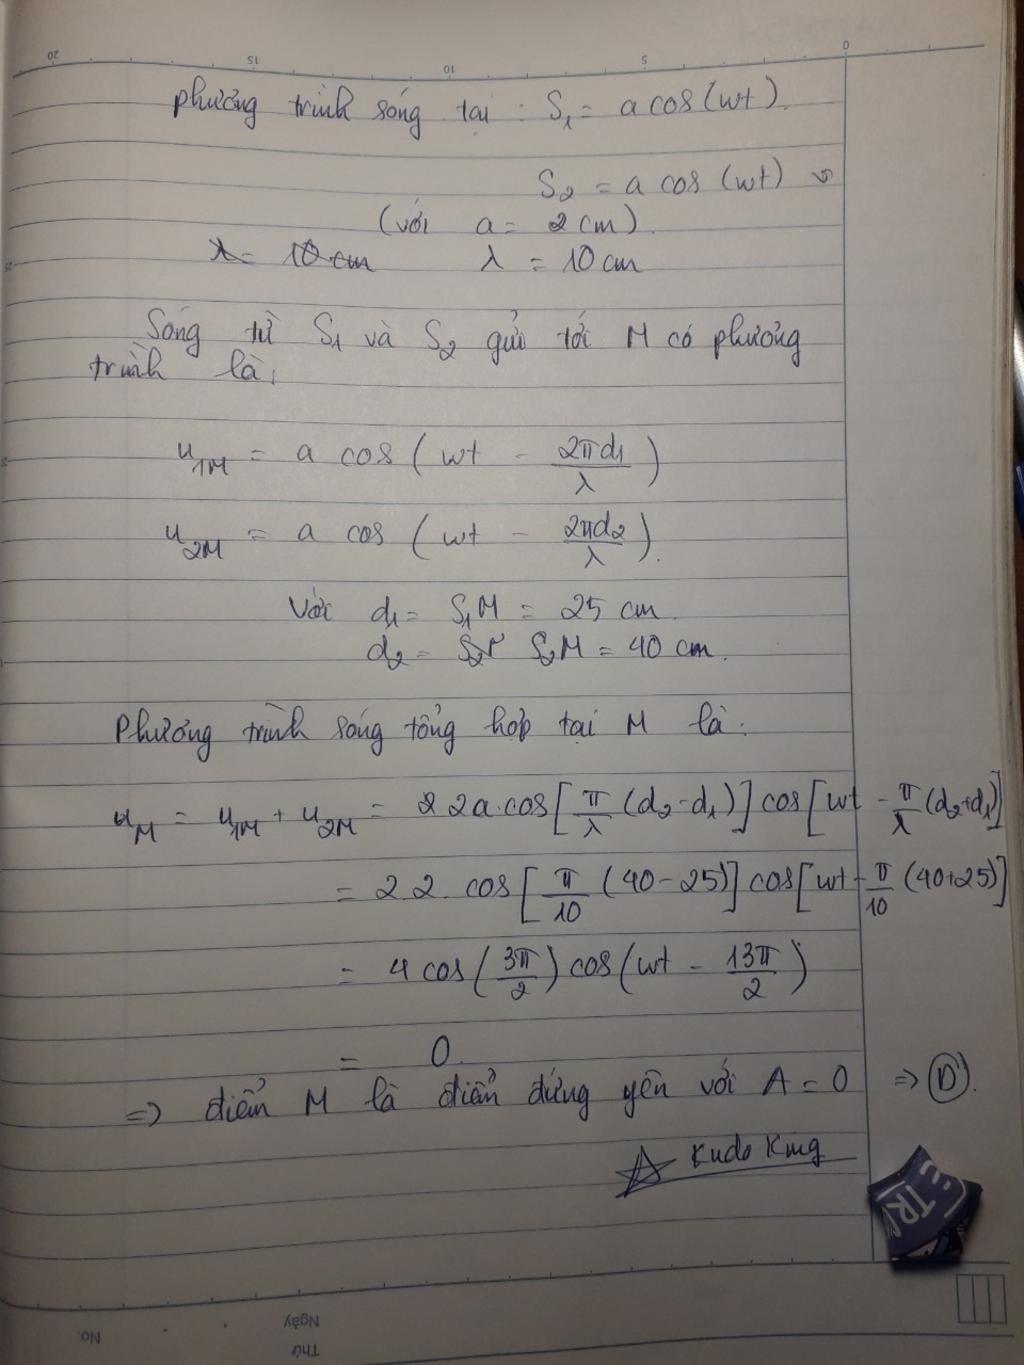 20 15 10 5 0
phương trình sóng tại : S₁ = a cos(wt).
S₂ = a cos (wt)
(với a = 2 cm).
λ = 10 cm λ = 10 cm
Sóng từ S₁ và S₂ gửi tới M có phương
trình là:
u₁M = a cos ( wt - 2πd₁/λ )
u₂M = a cos ( wt - 2πd₂/λ ).
Với d₁ = S₁M = 25 cm.
d₂ = S₂M = 40 cm.
Phương trình sóng tổng hợp tại M là:
uM = u₁M + u₂M = 2 2a.cos[π/λ (d₂-d₁)] cos[wt - π/λ (d₂+d₁)]
= 2.2. cos[π/10 (40-25)] cos[wt - π/10 (40+25)]
= 4 cos(3π/2) cos(wt - 13π/2)
= 0.
=> điểm M là điểm đứng yên với A = 0 => (D).
Kudo King
TR
Ngày
No.
Thứ